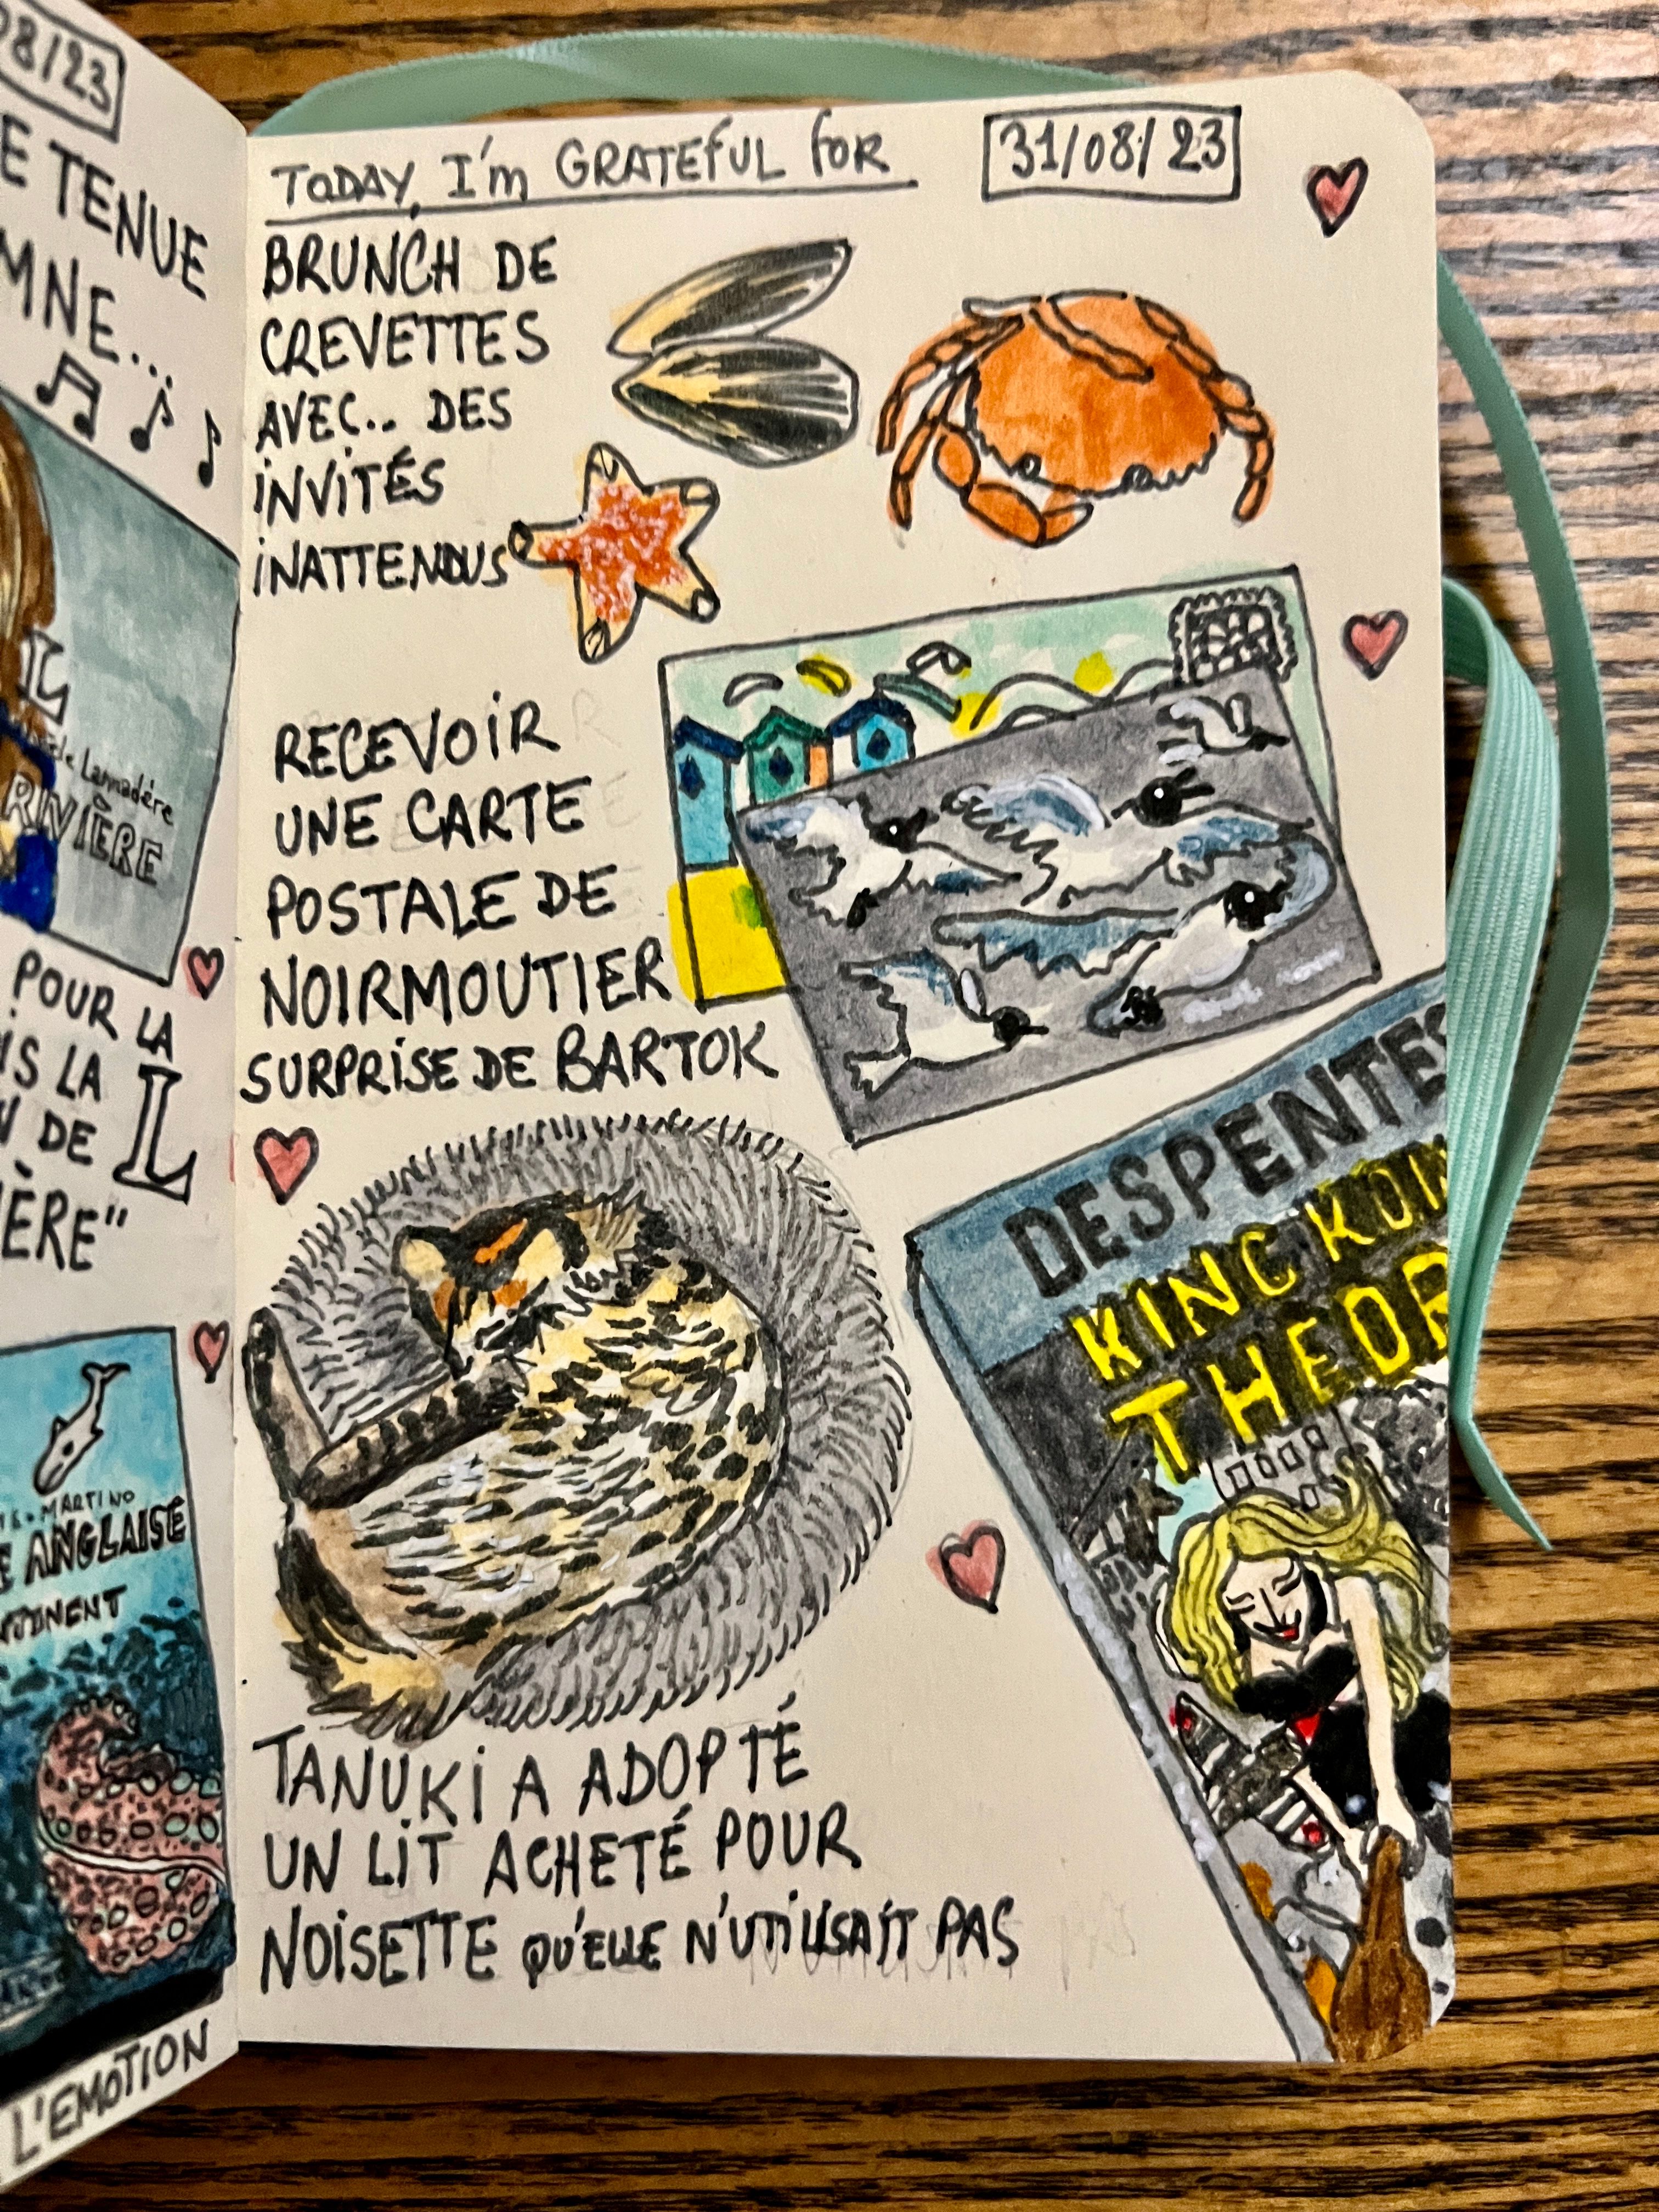 08/23
E TENUE
MNE...
L
de Lamadère
RIVIÈRE
POUR LA
IS LA
DE L
IÈRE"
MARTINO
E ANGLAISE
L'EMOTION
TODAY, I'm GRATEFUL for
31/08/23
BRUNCH DE
CREVETTES
AVEC... DES
INVITÉS
INATTENDUS
RECEVOIR
UNE CARTE
POSTALE DE
NOIRMOUTIER
SURPRISE DE BARTOK
DESPENTES
KING KON
THEOR
TANUKI A ADOPTÉ
UN LIT ACHETÉ POUR
NOISETTE QU'ELLE N'UTILISAIT PAS